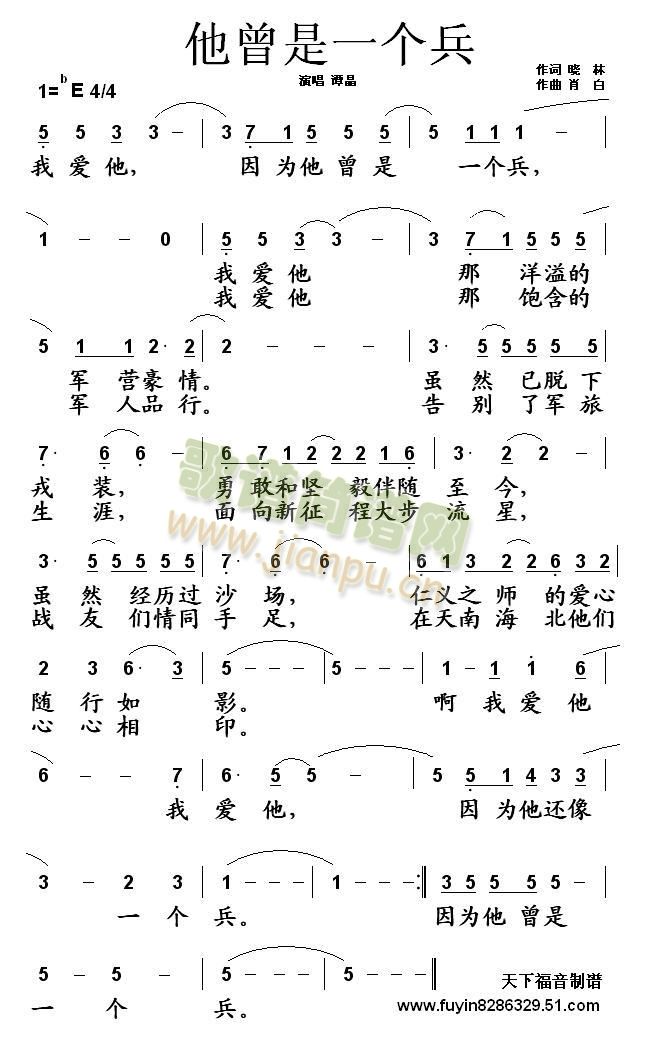 他曾是一个兵
1=♭E 4/4
演唱 谭晶
作词 晓 林
作曲 肖 白
5 5 3 3 – | 3 7 1 5 5 5 | 5 1 1 1 –
我 爱 他， 因 为 他 曾 是 一 个 兵，
1 – – 0 | 5 5 3 3 – | 3 7 1 5 5 5
我 爱 他 那 洋 溢 的
我 爱 他 那 饱 含 的
5 1 1 2· 2 | 2 – – – | 3· 5 5 5 5 5
军 营 豪 情。 虽 然 已 脱 下
军 人 品 行。 告 别 了 军 旅
7· 6 6 – | 6 7 1 2 2 2 1 6 | 3· 2 2 –
戎 装， 勇 敢 和 坚 毅 伴 随 至 今，
生 涯， 面 向 新 征 程 大 步 流 星，
3· 5 5 5 5 5 | 7· 6 6 – | 6 1 3 2 2 6 3 2
虽 然 经 历 过 沙 场， 仁 义 之 师 的 爱 心
战 友 们 情 同 手 足， 在 天 南 海 北 他 们
2 3 6· 3 | 5 – – – | 5 – – – | 1 – 1 1· 6
随 行 如 影。 啊 我 爱 他
心 心 相 印。
6 – – 7 | 6· 5 5 – | 5 5 1 4 3 3
我 爱 他， 因 为 他 还 像
3 – 2 3 | 1 – – – | 1 – – – :| 3 5 5 5 5 –
一 个 兵。 因 为 他 曾 是
5 – 5 – | 5 – – – | 5 – – – ||
一 个 兵。
天下福音制谱
www.fuyin8286329.51.com
歌谱简谱网
www.jianpu.cn